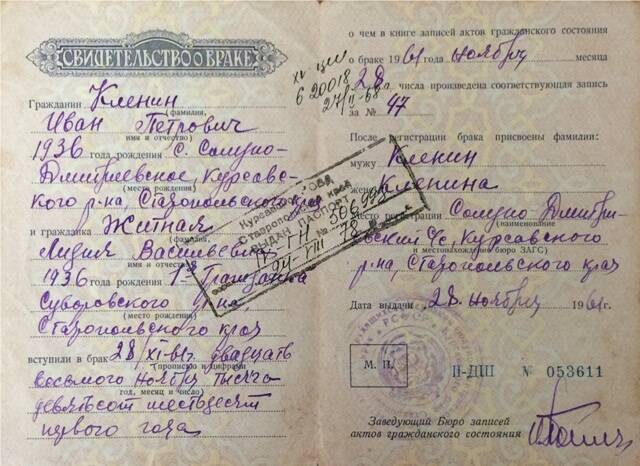 СВИДЕТЕЛЬСТВО О БРАКЕ
Гражданин Кленин
(фамилия,
Иван Петрович
имя и отчество)
1936 года рождения с. Солуно-
Дмитриевское, Курсавс-
(место рождения)
кого р-на, Ставропольского края
и гражданка Житная
(фамилия,
Лидия Васильевна
имя и отчество)
1936 года рождения
Суворовского р-на,
(место рождения)
Ставропольского края
вступили в брак 28/XI-61г. двадцать
(прописью и цифрами
восьмого ноября тысяча
год, месяц и число)
девятьсот шестьдесят
первого года
о чем в книге записей актов гражданского состояния
о браке 1961 года ноября месяца
28 числа произведена соответствующая запись
за № 47
После регистрации брака присвоены фамилии:
мужу Кленин
жене Кленина
Место регистрации Солуно-Дмитри-
(наименование
евский с/с, Курсавского
и местонахождение бюро ЗАГС)
р-на, Ставропольского края
Дата выдачи 28 ноября 1961 г.
М. П.
II-ДШ № 053611
Заведующий Бюро записей
актов гражданского состояния
6 20018
27/II-68
Ставропольский край
ВЫДАН ПАСПОРТ
№ 506998